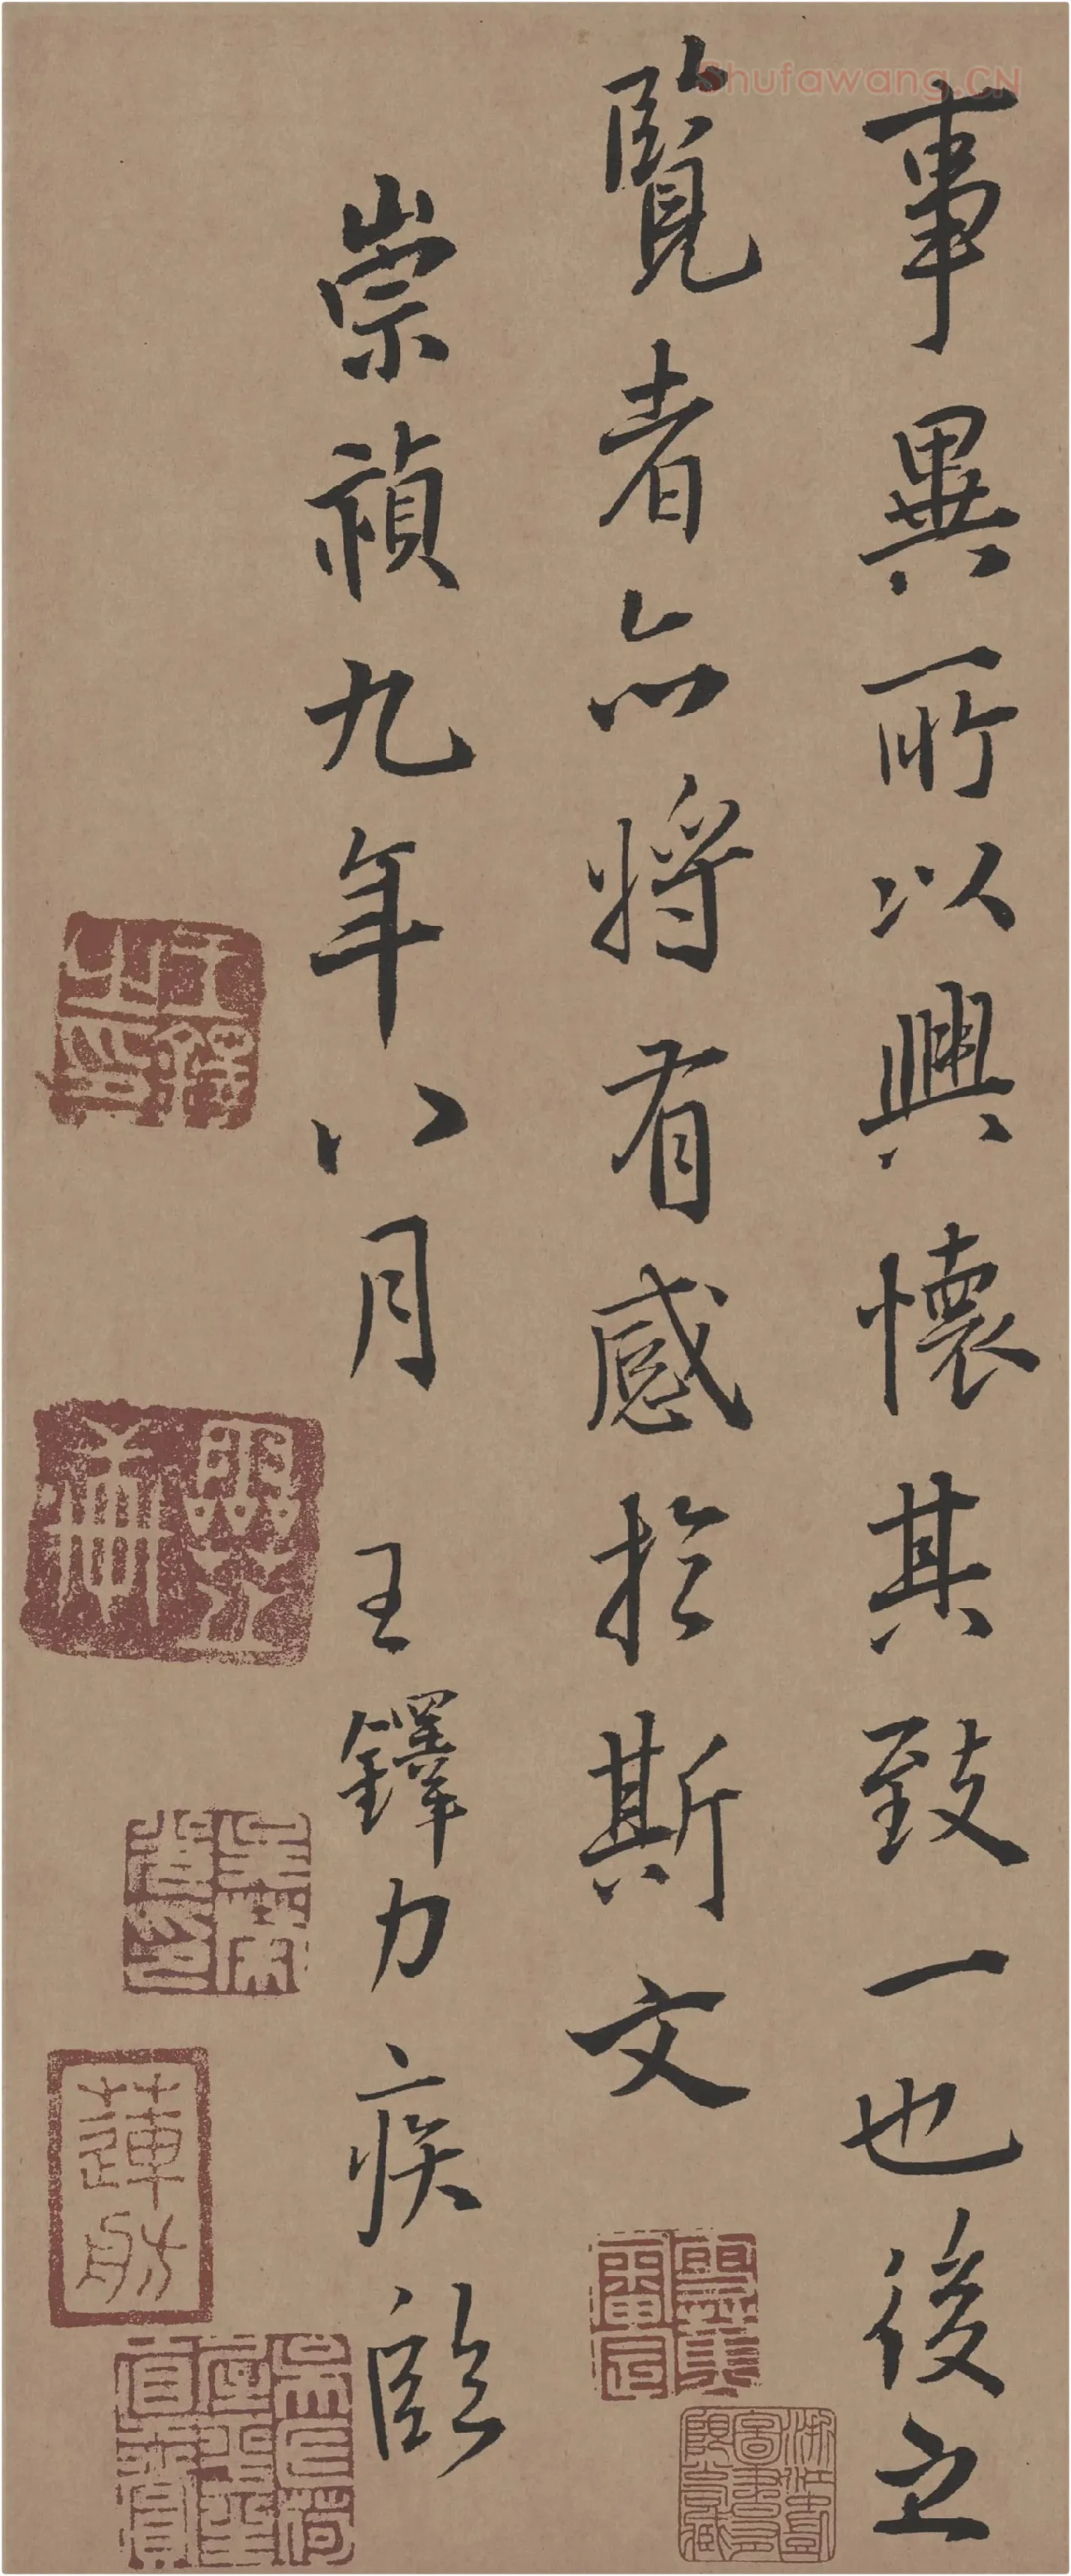 事異所以興懷其致一也後之
覽者亦將有感於斯文
崇禎九年八月 王鐸力疾臨
王鐸之印
蓮舫
Shufawang.CN